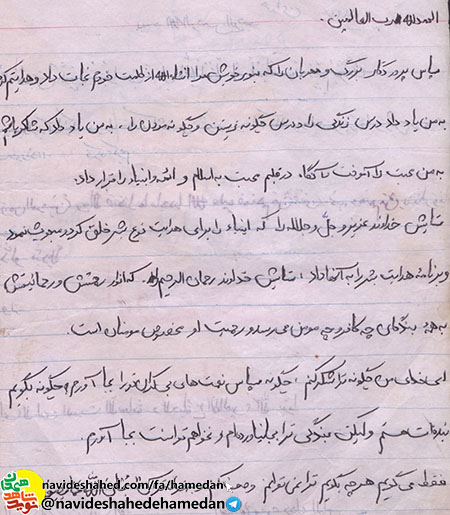 الحمدلله رب العالمین.
سپاس پروردگار بزرگ و مهربان را که بنور خودش مرا انشاءالله از ظلمت خودم نجات داد و هدایتم کرد
به من یاد داد درس زندگی را و درس چگونه زیستن و چگونه مردن را، به من یاد داد که شاکر باشم
به من محبت را آموخت تا آنگاه، در قلبم محبت به اسلام و ائمه و انبیاء را قرار داد.
ستایش خداوند عزیز و جل و جلاله را که انبیاء را برای هدایت نوع بشر خلق کرد و مبعوث نمود
و برنامه هدایت بشر را به آنها داد، ستایش خداوند رحمان الرحیم که انوار رحمتش و رحمانیتش
به همه بندگان چه کافر و چه مومن می رسد و رحمت او مخصوص مومنان است.
الهی خدای من چگونه ترا شکر کنم، چگونه سپاس نعمت های بی کران تو را بجا آورم، چگونه بگویم
بنده ات هستم ولیکن بندگی ترا بجا نیاورده ام و نخواهم توانست بجا آورم.
فقط می گویم هر چه بگویم ترا نمی توانم وصف کنم
navideshahed.com/fa/hamedan
@navideshahedehamedan